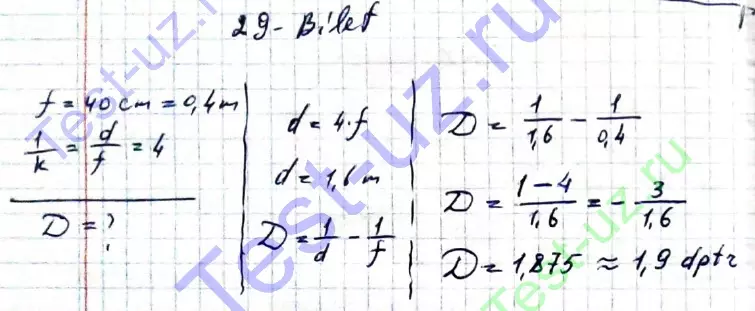 29-Bilet
f = 40 cm = 0,4 m
1/k = d/f = 4
D = ?
d = 4·f
d = 1,6 m
D = 1/d - 1/f
D = 1/1,6 - 1/0,4
D = (1-4)/1,6 = - 3/1,6
D = 1,875 ≈ 1,9 dptr
Test-uz.ru
Test-uz.ru
Test-uz.ru